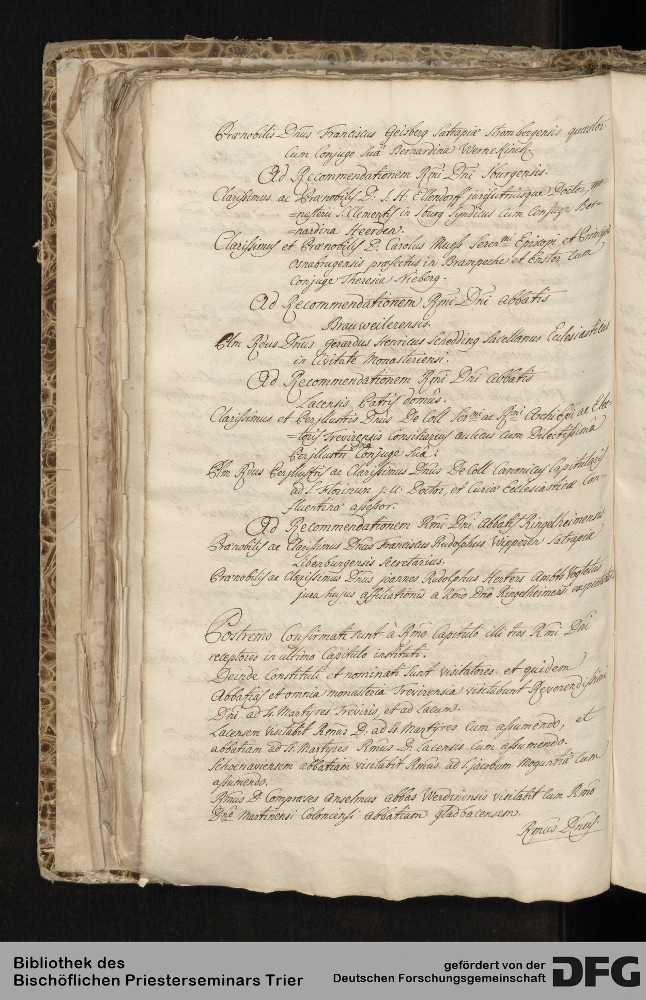 Prænobilis Dnus Franciscus Geisberg Satrapiæ Strombergensis quæstor
cum Conjuge suâ Bernardina Wernekink.
Ad Recommendationem Rmi Dni Iburgensis.
Clarissimus ac Prænobilis D. J. H. Ellendorff juris utriusque Doctor, mo-
=nasterii S. Clementis in Iburg Syndicus cum Conjuge Ber-
=nardina Heerden.
Clarissimus et Prænobilis D. Carolus Maess Seren:mi Episcopi et Principis
Osnabrugensis præfectus in Brampsche et cum
Conjuge Theresia Nieberg.
Ad Recommendationem Rmi Dni Abbatis
Brauweilerensis.
Plm Rdus Dnus Gerardus Henricus Schedding Sacellanus Ecclesiasticus
in Civitate Monasteriensi.
Ad Recommendationem Rmi Dni Abbatis
Lacensis, Patris domûs.
Clarissimus et Perillustris Dnus De Coll Ser:mi ac R:mi Archi Epi ac Elec-
=toris Trevirensis Consiliarius aulicus cum Dilectissimâ
Perillustri Dna Conjuge Suâ:
Plm Rdus Perillustris ac Clarissimus Dnus De Coll Canonicus Capitularis
ad S. Florinum j. u. Doctor, et Curiæ Ecclesiasticæ Con-
fluentinæ assessor.
Ad Recommendationem Rmi Dni Abbatis Ringelheimensis
Prænobilis ac Clarissimus Dnus Franciscus Rudolphus Wipperen Satrapiæ
Libenburgensis Secretarius.
Prænobilis ac Clarissimus Dnus Joannes Rudolphus Herbens
jura hujus affiliationis a Rmo Dno Ringelheimensi
Postremo Confirmati sunt à Rmo Capitulo illi tres Rmi Dni
receptores in ultimo Capitulo instituti.
Deinde Constituti et nominati sunt visitatores et quidem
Abbatias et omnia monasteria Trevirensia visitabunt Reverendissimi
Dni ad SS. Martyres Treviris, et ad Lacum.
Lacensem visitabit Rmus D. ad SS. Martyres cum assumendo, et
abbatiam ad SS. Martyres Rmus D. Lacensis cum assumendo.
Schoenaviensem abbatiam visitabit Rmus ad S. Jacobum Moguntiæ cum
assumendo.
Rmus D. Compræses Anselmus abbas Werdinensis visitabit cum Rmo
Dno Martinensi Coloniensi abbatiam gladbacensem.
Rmus Dnus
Bibliothek des
Bischöflichen Priesterseminars Trier
gefördert von der
Deutschen Forschungsgemeinschaft
DFG